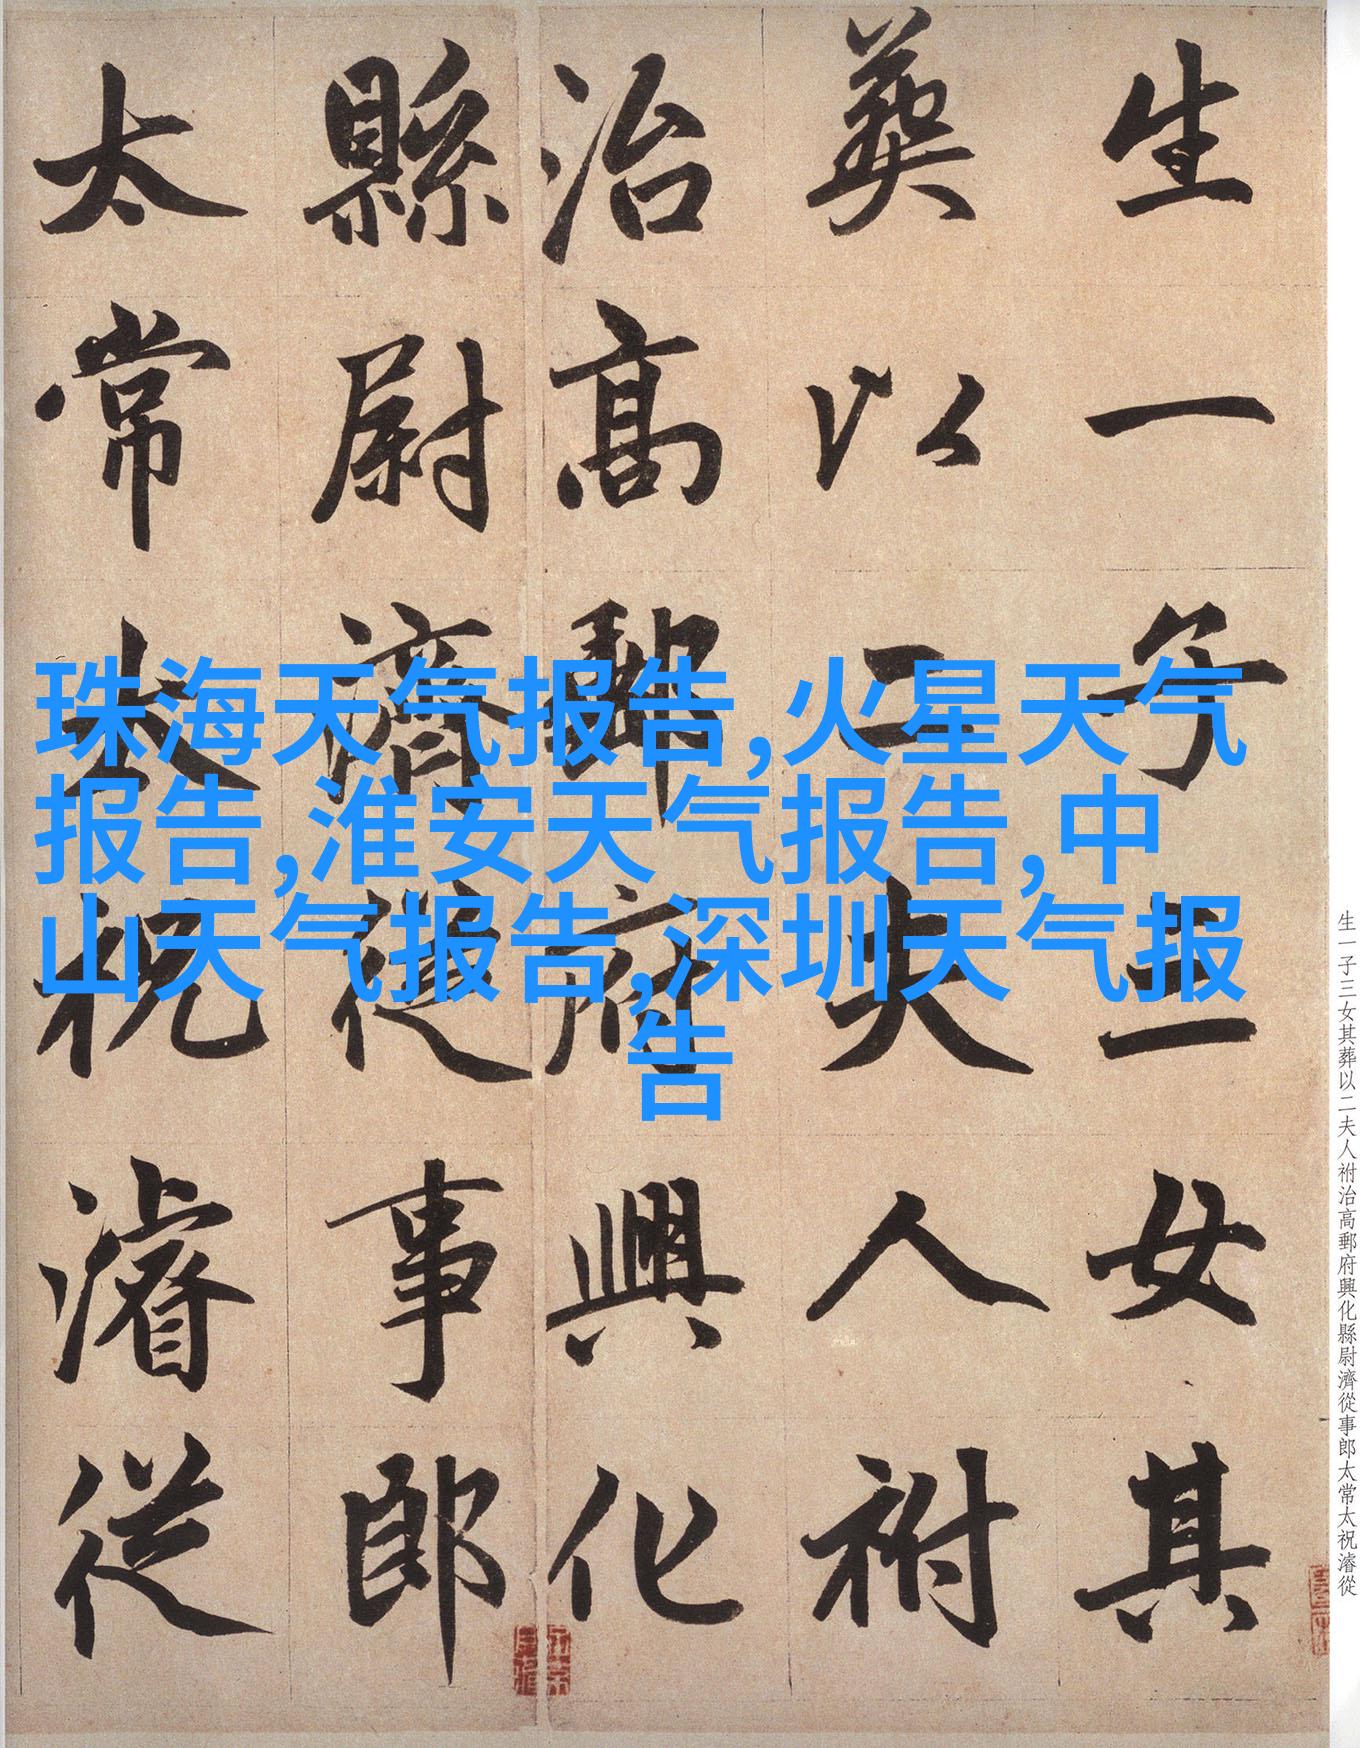 生一子三女其
葬以二夫人祔
治高郵府興化
縣尉濟從事郎
太常太祝濬從
珠海天气报告,火星天气
报告,淮安天气报告,中
山天气报告,深圳天气报
告
生一子三女其葬以二夫人祔治高郵府興化縣尉濟從事郎太常太祝濬從